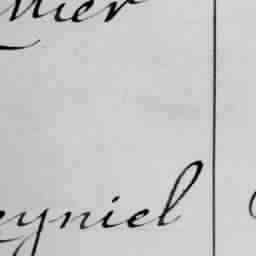 llier
eyniel